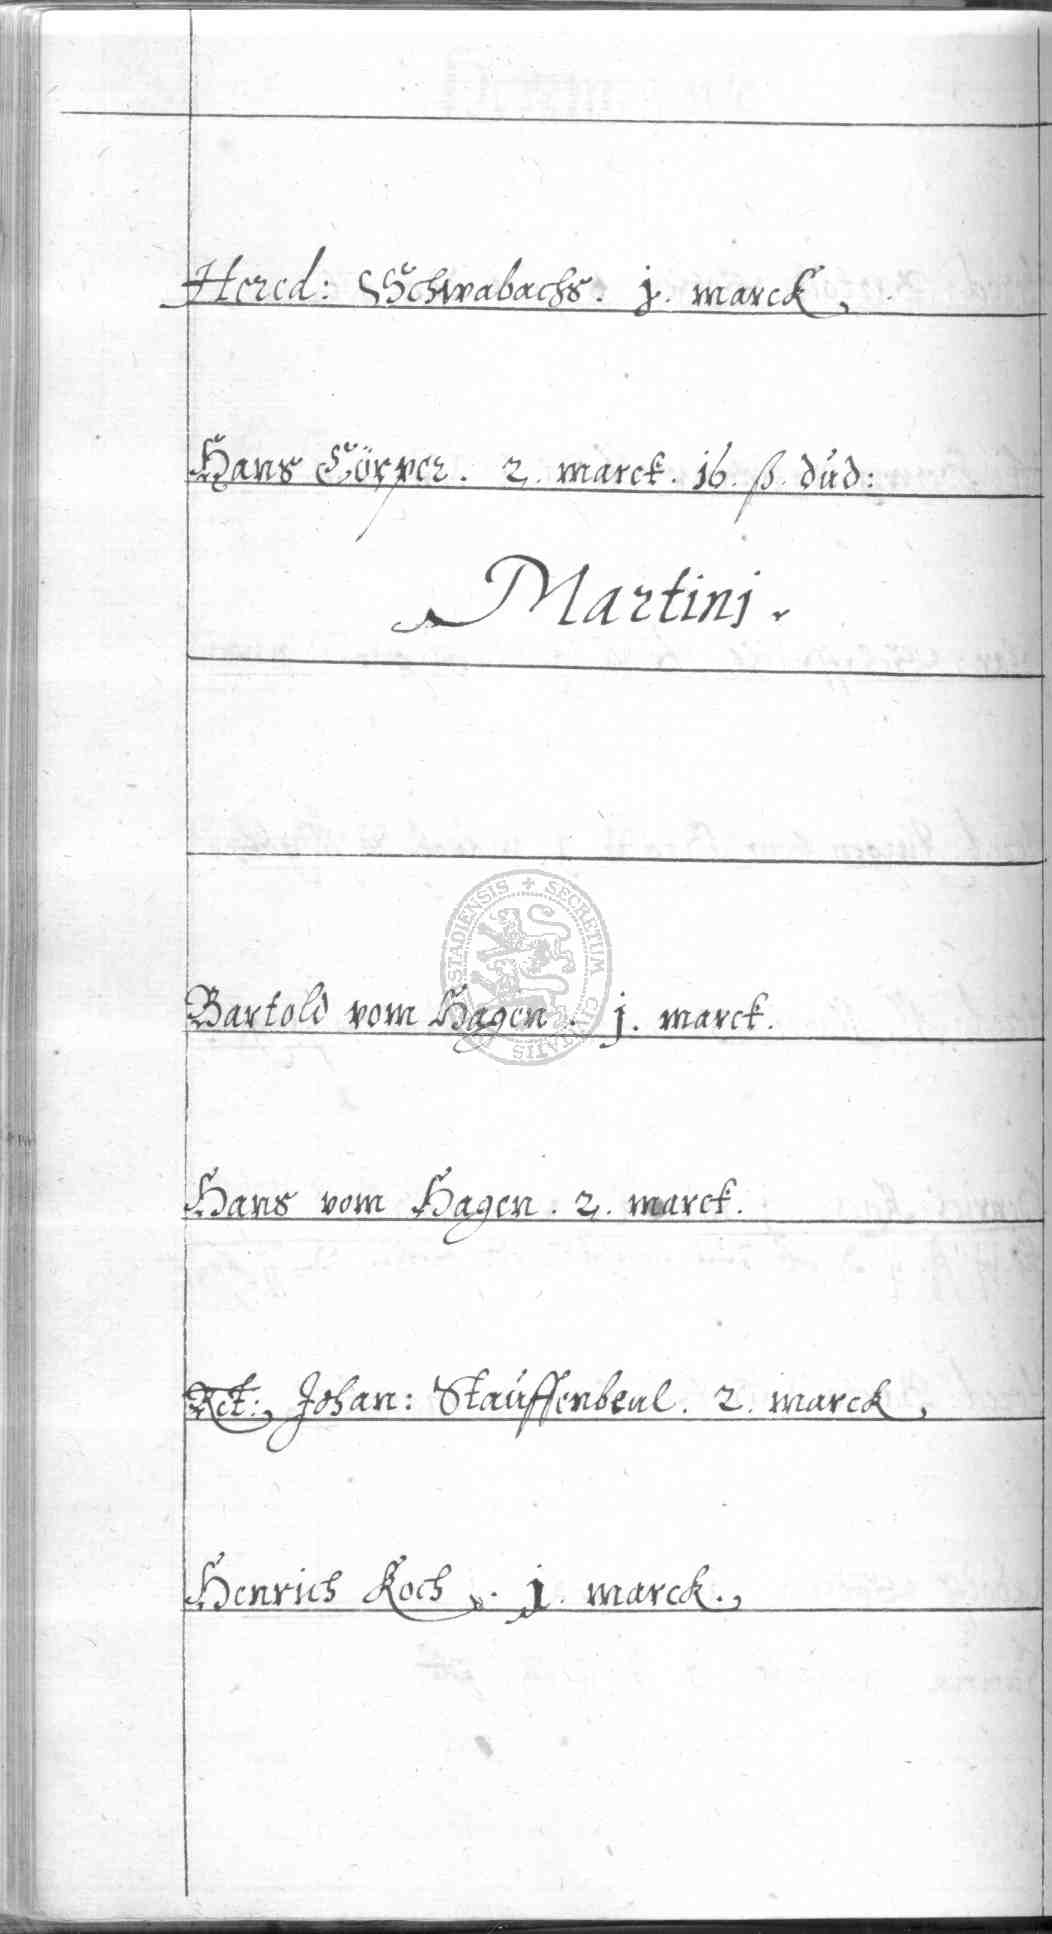 Hered: Schwabachs. j. marck.
Hans Cörper. 2. marck. 16. ß. dúd:
Martinj.
Bartold vom Hagen. j. marck.
Hans vom Hagen. 2. marck.
Rct: Johan: Staúffenbeul. 2. marck,
Henrich Koch. j. marck.,
STADIENSIS + SECRETUM CIVITATIS